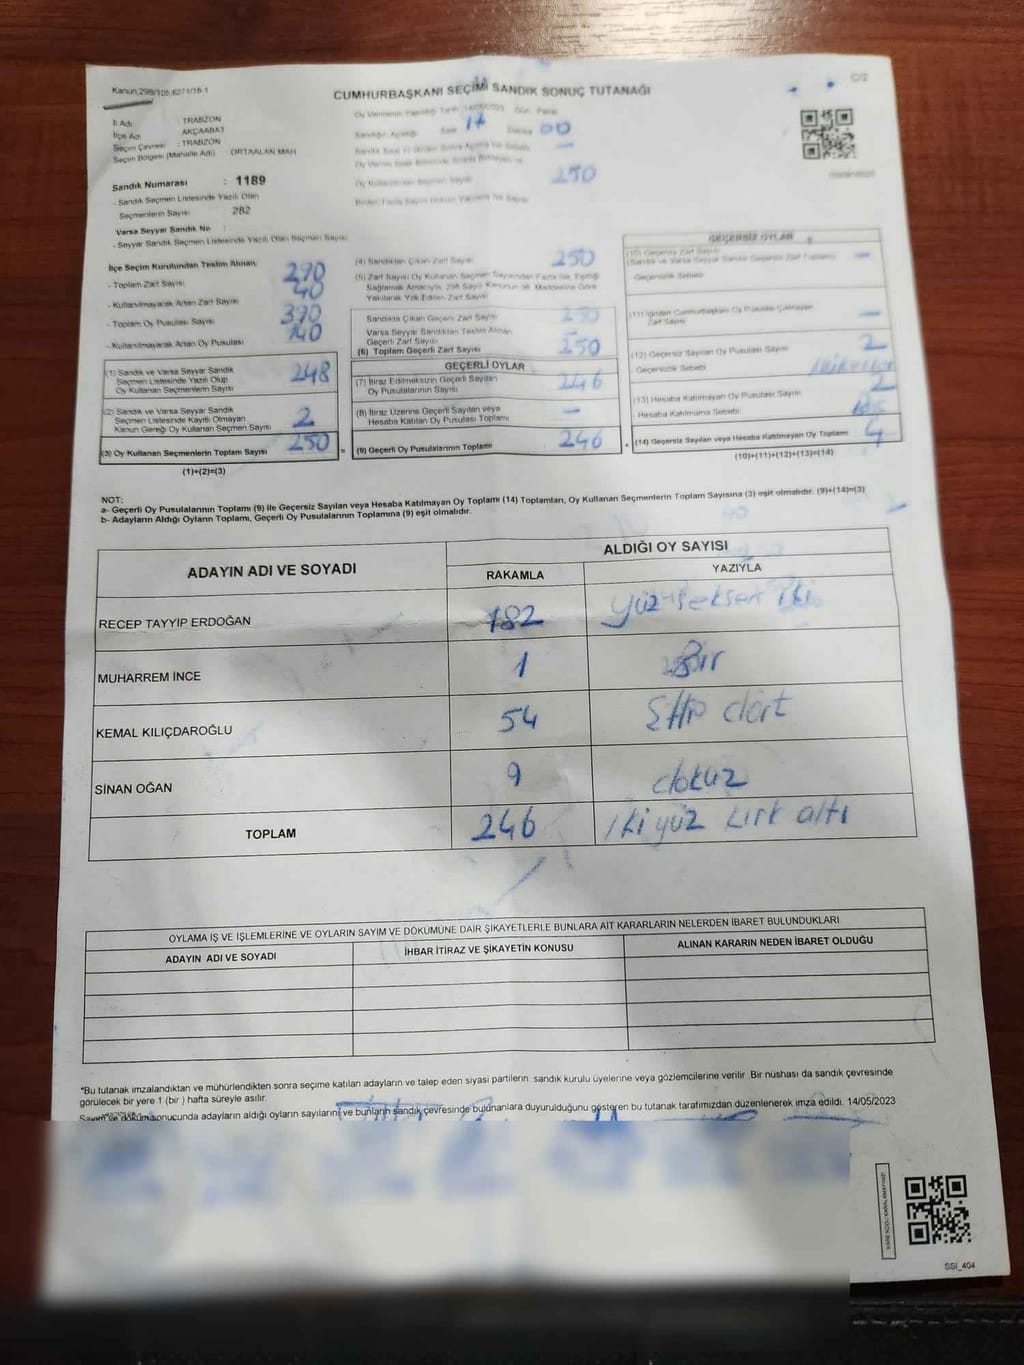 Kanun:298/105,6271/16.1
C/2
CUMHURBAŞKANI SEÇİMİ SANDIK SONUÇ TUTANAĞI
İl Adı : TRABZON
İlçe Adı : AKÇAABAT
Seçim Çevresi : TRABZON
Seçim Bölgesi (Mahalle Adı) : ORTAALAN MAH
Sandık Numarası : 1189
- Sandık Seçmen Listesinde Yazılı Olan
Seçmenlerin Sayısı : 282
Varsa Seyyar Sandık No :
- Seyyar Sandık Seçmen Listesinde Yazılı Olan Seçmen Sayısı:
Sandığın Açıldığı Saat 17 Dakika 00
Oy Kullananların Seçmen Sayısı 250
İlçe Seçim Kurulundan Teslim Alınan:
- Toplam Zarf Sayısı 290
- Kullanılmayarak Artan Zarf Sayısı 40
- Toplam Oy Pusulası Sayısı 390
- Kullanılmayarak Artan Oy Pusulası 140
(1) Sandık ve Varsa Seyyar Sandık
Seçmen Listesinde Yazılı Olup
Oy Kullanan Seçmenlerin Sayısı 248
(2) Sandık ve Varsa Seyyar Sandık
Seçmen Listesinde Kayıtlı Olmayan
Kanun Gereği Oy Kullanan Seçmen Sayısı 2
(3) Oy Kullanan Seçmenlerin Toplam Sayısı 250 =
(1)+(2)=(3)
(4) Sandıktan Çıkan Zarf Sayısı 250
(5) Zarf Sayısı Oy Kullanan Seçmen Sayısından Fazla İse, Eşitliği
Sağlamak Amacıyla, 298 Sayılı Kanunun 98. Maddesine Göre
Yakılarak Yok Edilen Zarf Sayısı
Sandıkta Çıkan Geçerli Zarf Sayısı 250
Varsa Seyyar Sandıktan Teslim Alınan
Geçerli Zarf Sayısı –
(6) Toplam Geçerli Zarf Sayısı 250
GEÇERLİ OYLAR
(7) İtiraz Edilmeksizin Geçerli Sayılan
Oy Pusulalarının Sayısı 246
(8) İtiraz Üzerine Geçerli Sayılan veya
Hesaba Katılan Oy Pusulası Toplamı –
(9) Geçerli Oy Pusulalarının Toplamı 246 +
GEÇERSİZ OYLAR
(10) Geçersiz Zarf Sayısı
(Sandık ve Varsa Seyyar Sandık Geçersiz Zarf Toplamı) –
Geçersizlik Sebebi
(11) İçinden Cumhurbaşkanı Oy Pusulası Çıkmayan
Zarf Sayısı –
(12) Geçersiz Sayılan Oy Pusulası Sayısı 2
Geçersizlik Sebebi
(13) Hesaba Katılmayan Oy Pusulası Sayısı 2
Hesaba Katılmama Sebebi
(14) Geçersiz Sayılan veya Hesaba Katılmayan Oy Toplamı 4
(10)+(11)+(12)+(13)=(14)
NOT:
a- Geçerli Oy Pusulalarının Toplamı (9) ile Geçersiz Sayılan veya Hesaba Katılmayan Oy Toplamı (14) Toplamları, Oy Kullanan Seçmenlerin Toplam Sayısına (3) eşit olmalıdır. (9)+(14)=(3)
b- Adayların Aldığı Oyların Toplamı, Geçerli Oy Pusulalarının Toplamına (9) eşit olmalıdır.
ADAYIN ADI VE SOYADI
ALDIĞI OY SAYISI
RAKAMLA YAZIYLA
RECEP TAYYİP ERDOĞAN 182 Yüz seksen iki
MUHARREM İNCE 1 Bir
KEMAL KILIÇDAROĞLU 54 Elli dört
SİNAN OĞAN 9 dokuz
TOPLAM 246 İki yüz kırk altı
OYLAMA İŞ VE İŞLEMLERİNE VE OYLARIN SAYIM VE DÖKÜMÜNE DAİR ŞİKAYETLERLE BUNLARA AİT KARARLARIN NELERDEN İBARET BULUNDUKLARI
ADAYIN ADI VE SOYADI İHBAR İTİRAZ VE ŞİKAYETİN KONUSU ALINAN KARARIN NEDEN İBARET OLDUĞU
*Bu tutanak imzalandıktan ve mühürlendikten sonra seçime katılan adayların ve talep eden siyasi partilerin sandık kurulu üyelerine veya gözlemcilerine verilir. Bir nüshası da sandık çevresinde
görülecek bir yere 1 (bir) hafta süreyle asılır.
Sayım ve döküm sonucunda adayların aldığı oyların sayılarını ve bunların sandık çevresinde bulunanlara duyurulduğunu gösteren bu tutanak tarafımızdan düzenlenerek imza edildi. 14/05/2023
KARE KODU KARALAMAYINIZ!
SSI_404